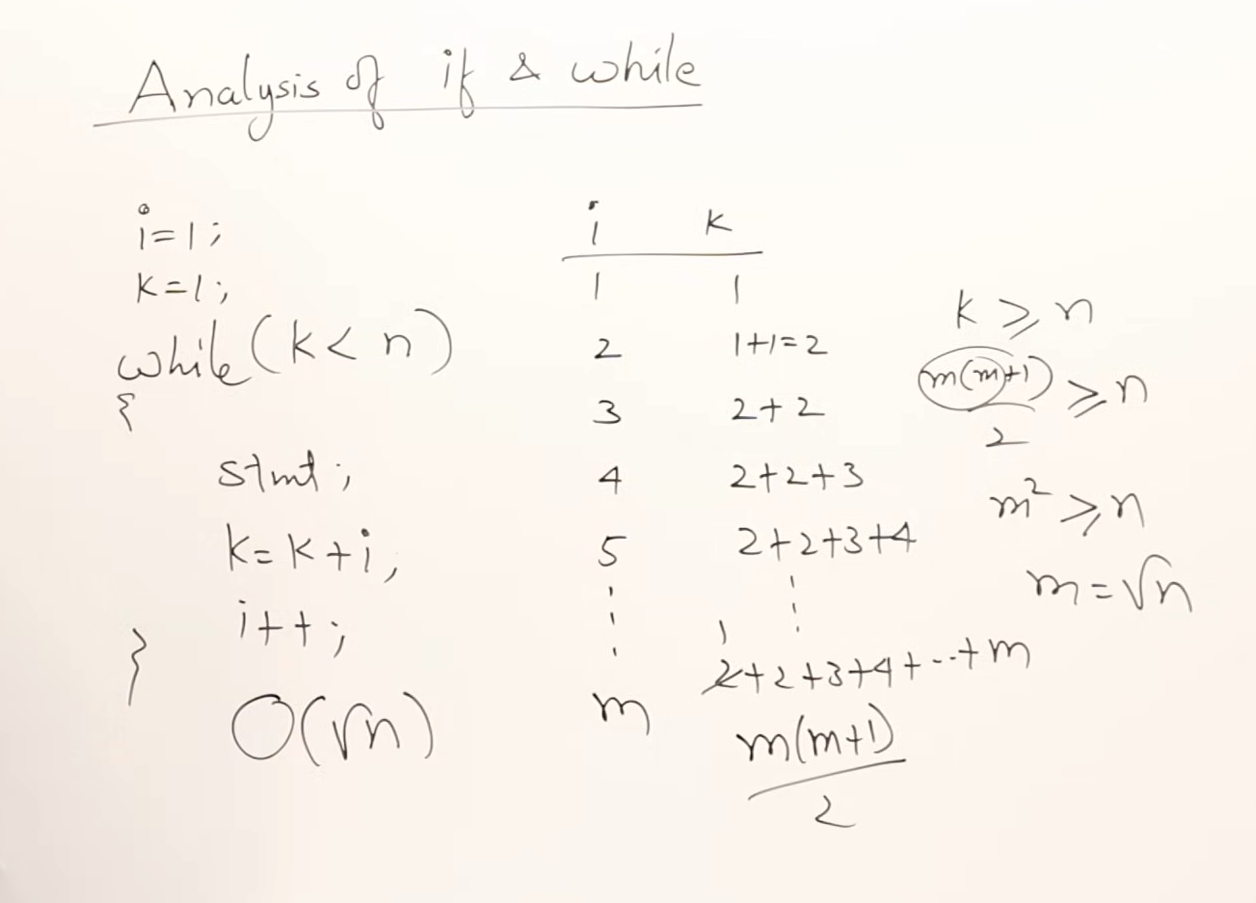 Analysis of if & while
i=1;
k=1;
while(k<n)
{
stmt;
k=k+i;
i++;
}
O(√n)
i k
1 1
2 1+1=2
3 2+2
4 2+2+3
5 2+2+3+4
1
m 2+2+3+4+--+m
m(m+1)
2
k≥n
m(m+1) ≥n
2
m²≥n
m=√n